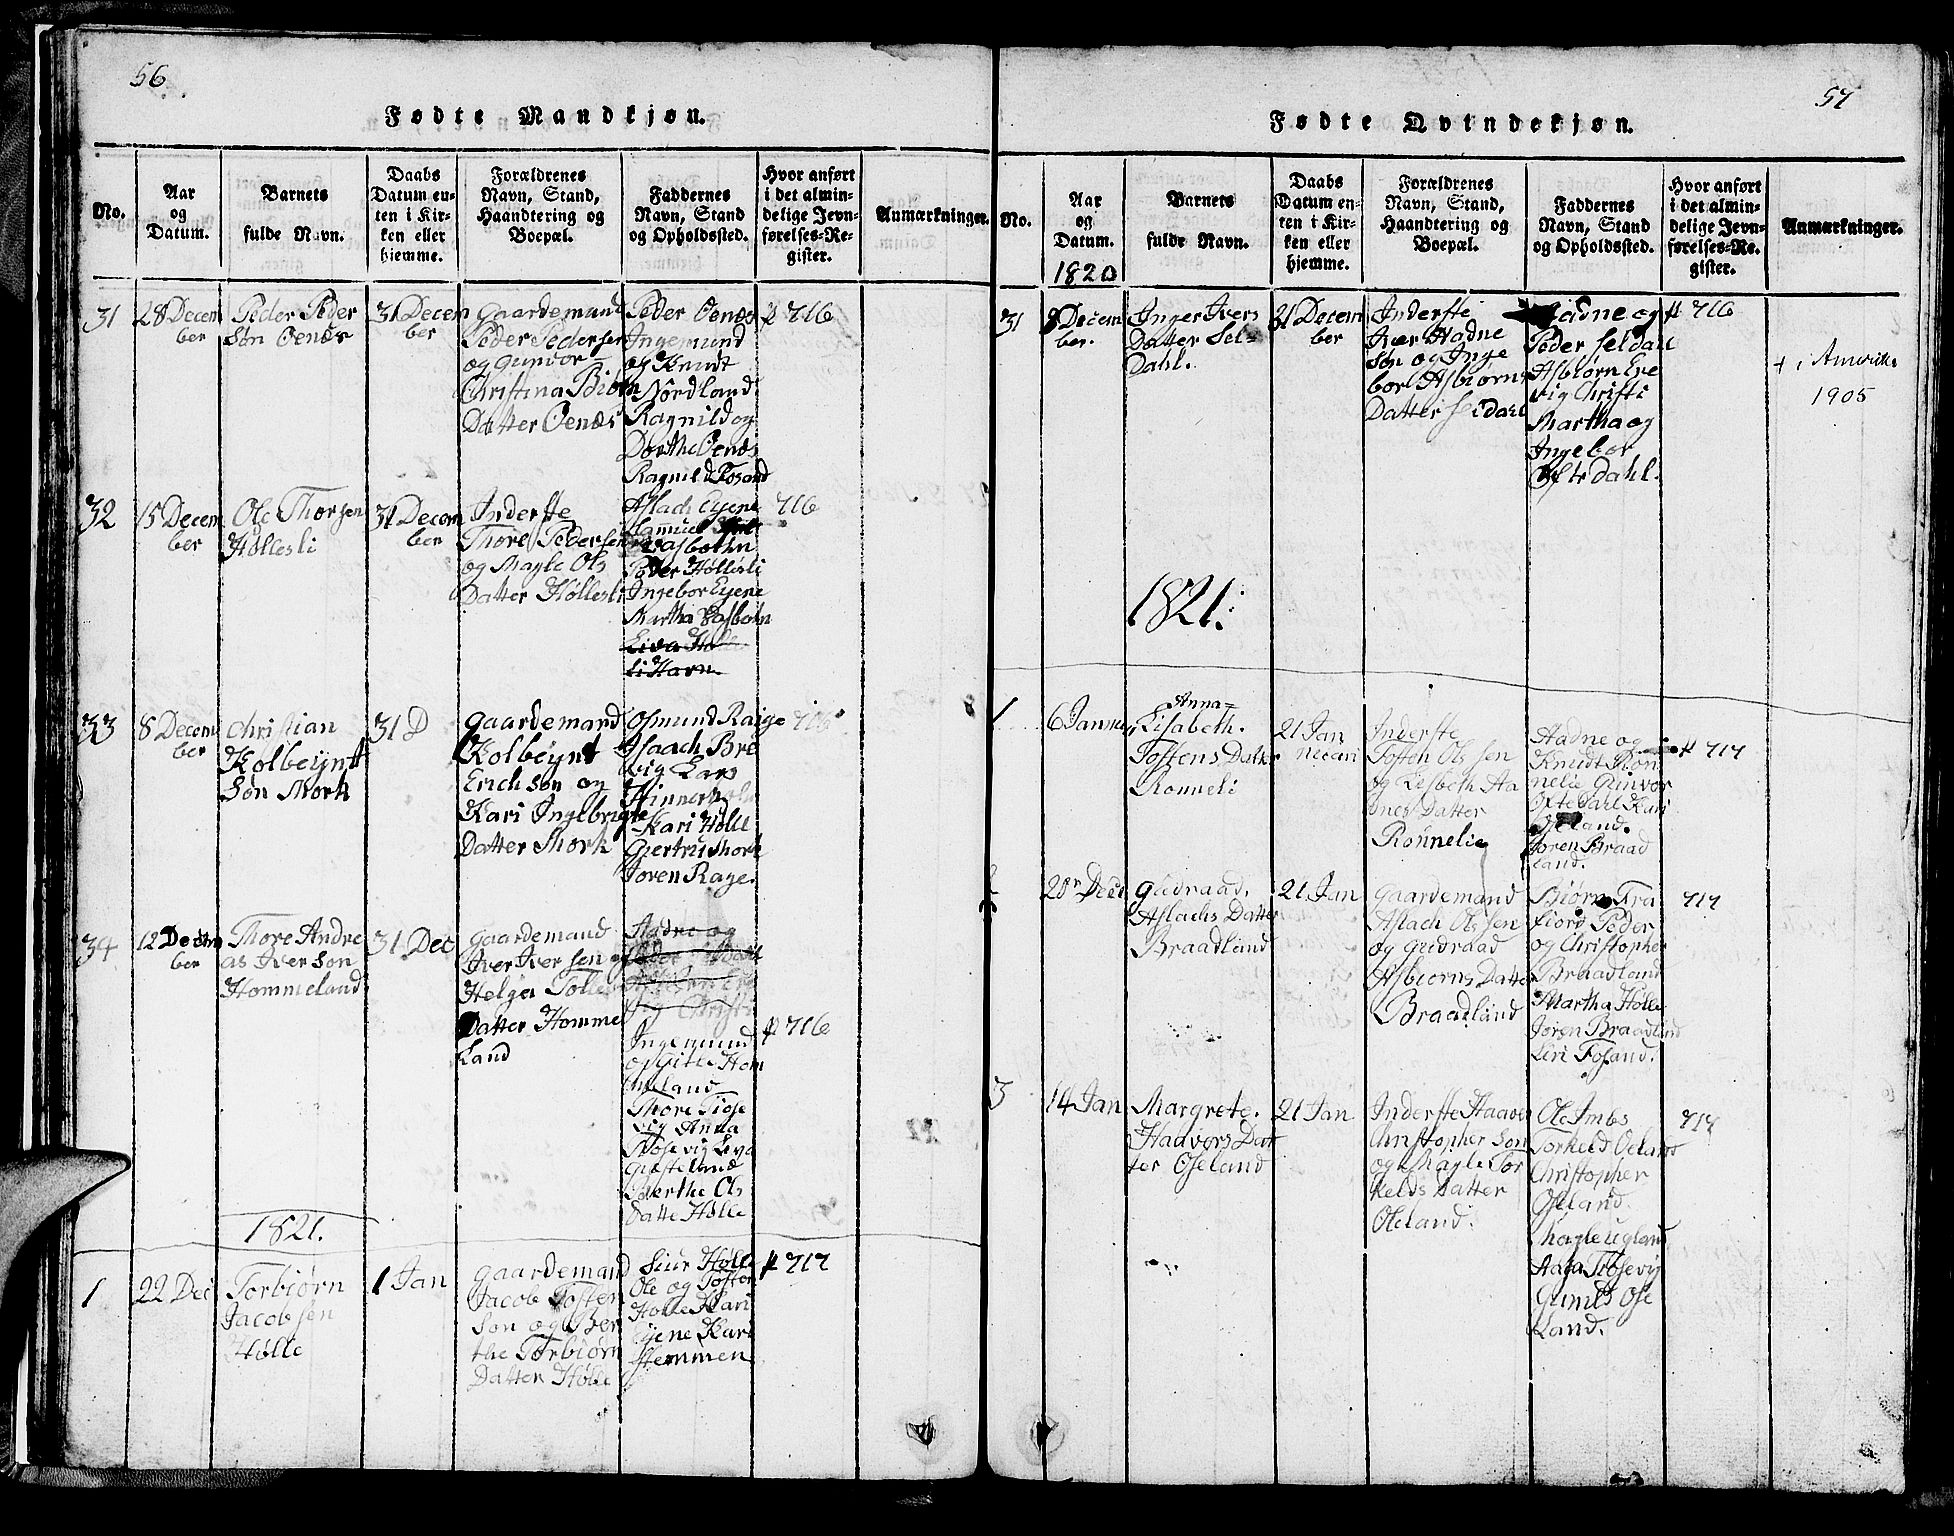 56
Fødte Mandkjøn.
No.
Aar
og
Datum.
Barnets
fulde Navn.
Daabs
Datum en-
ten i Kir-
ken eller
hjemme.
Forældrenes
Navn, Stand,
Haandtering og
Boepæl.
Faddernes
Navn, Stand
og Opholdssted.
Hvor anført
i det almin-
delige Jevn-
førelses-Re-
gister.
Anmærkninger.
31
28 Decem
ber
Peder Peder
Søn Oenæs
31 Decem
ber
Gaardemand
Peder Pedersen
og Gunvor
Christina Biørn
Datter Oenæs
Peder Oenæs
Ingemund
og Knudt
Nordland
Ragnild og
Dorthe Oenæs
Ragnild Fosand
p 716
32
15 Decem
ber
Ole Thorsen
Høllesli
31 Decem
ber
Inderste
Thore Pedersen
og Magle Ols
Datter Høllesli
Aslach Eyene
Samuel
Vasbothn
Peder Høllesli
Ingebor Eyene
Martha Vasbotn
716
33
8 Decem
ber
Christian
Kolbeijnst
Søn Mork
31 D
Gaardemand
Kolbeynt
Erichson og
Kari Ingebrigts
Datter Mork
Osmund Raige
Isaach Bre
vig Lars
Kari Holle
Giertru Mork
Joren Rage.
716
34
12 Decem
ber
Thore Andre
as Iversøn
Hommeland
31 Dec
Gaardemand
Iver Iversen og
Helga Tolles
Datter Homme
Land
Hadne og
Ingemund
og Gitle Hom
meland
Thore Tigje
vig Anna
Tiosevig Leva
Giesteland
Berthe Ols
Datte Hølle
p 716
1821.
1
22 Dec
Torbiørn
Jacobsen
Hølle
1 Jan
Gaardemand
Jacob Tosten
Søn og Ber
the Torbiørn
Datter Hølle
Siur Hølle
Ole og Tosten
Holle Kari
Eyene Kari
Hemmen
p 717
57
Fødte Qvindekjøn.
No.
Aar
og
Datum.
1820
Barnets
fulde Navn.
Daabs
Datum en-
ten i Kir-
ken eller
hjemme.
Forældrenes
Navn, Stand,
Haandtering og
Boepæl.
Faddernes
Navn, Stand
og Opholdssted.
Hvor anført
i det almin-
delige Jevn-
førelses-Re-
gister.
Anmærkninger.
31
8 Decem
ber.
Inger Ivers
Datter Sel-
Dahl.
31 Decem
ber
Inderste
Iver Hadne
Søn og Inge
bor Asbiørns
Datter Seldahl
Hadne og
Peder Seldahl
Asbiørn Bre
vig Christi
Martha og
Ingebor
Ofte Dahl.
p 716
+ i Amerika
1905
1821.
1
6 Januar
Anna
Lisabeth.
Tostens Datter
Ronneli
21 Jan
Inderste
Tosten Olssen
og Lisbeth Aa
nes Datter
Rønnelie
Hadne og
Knudt Røn
nelie Gunvor
Ofte Dahl Kari
Oseland.
Joren Braad
land.
p 717
2
20 Dec
Gudraad.
Aslachs Datter
Braadland
21 Jan
Gaardemand
Aslach Olssen
og Gudraad
Asbiorns Datter
Braadland
Biørn Fra
fiord Peder
og Christopher
Braadland
Martha Hølle
Joren Braadland
Siri Fosand.
717
3
14 Jan
Margrete.
Haavors Dat
ter Oseland
21 Jan
Inderste Haavor
Christopher Søn
og Magle Tor
kelds Datter
Oseland.
Ole Imbs
Torkeld Oeland
Christopher
Oseland.
Magle Ugland
Aasa Tiøsevig
Gunild Ose
Land.
717